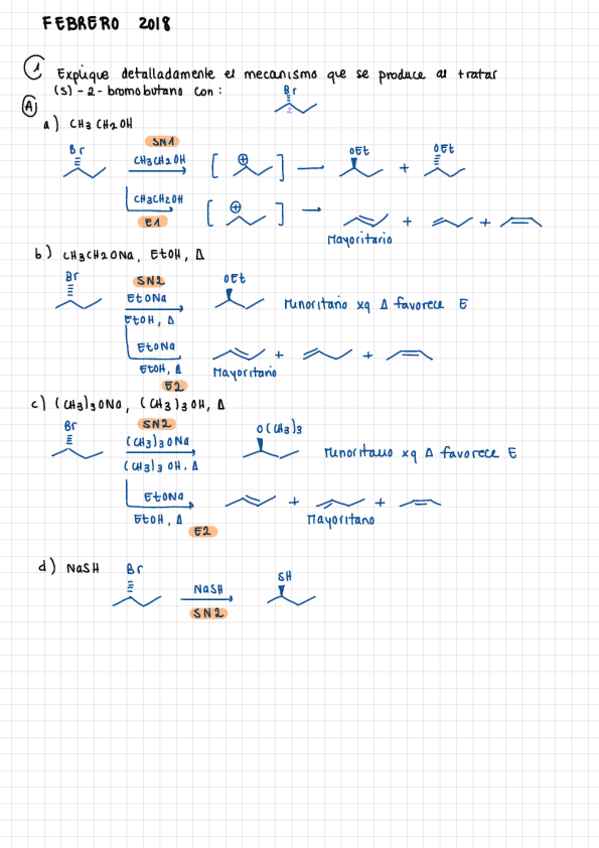 FEBRERO 2018
1 Explique detalladamente el mecanismo que se produce al tratar
(S)-2-bromobutano con:
Br
H
A
a) CH3CH2OH
SN1
Br
CH3CH2OH
[ ⊕ ]
OEt
+
OEt
CH3CH2OH
E1
[ ⊕ ]
+
+
Mayoritario
b) CH3CH2ONa, EtOH, Δ
Br
SN2
EtONa
EtOH, Δ
OEt
Minoritario xq Δ favorece E
EtONa
EtOH, Δ
E2
+
+
Mayoritario
c) (CH3)3ONa, (CH3)3OH, Δ
Br
SN2
(CH3)3ONa
(CH3)3OH, Δ
O(CH3)3
Minoritario xq Δ favorece E
EtONa
EtOH, Δ
E2
+
+
Mayoritario
d) NaSH
Br
NaSH
SN2
SH